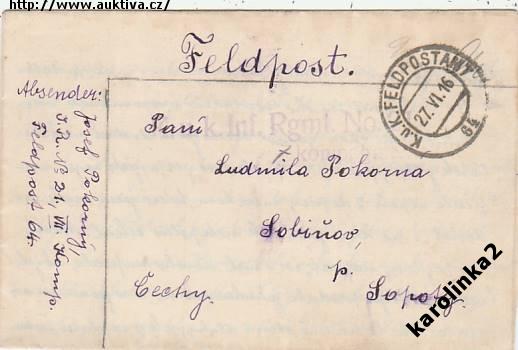 http://www.auktiva.cz/
Feldpost.
K.u.K. FELDPOSTAMT
27.VI.16
64
Absender:
Josef Pokorný,
I.R. No 21, VII. Komp.
Feldpost 64.
u.k. Inf. Rgmt. No
Paní
Ludmila Pokorna
Sobiňov,
p.
Čechy. Sopoty
karolinka2